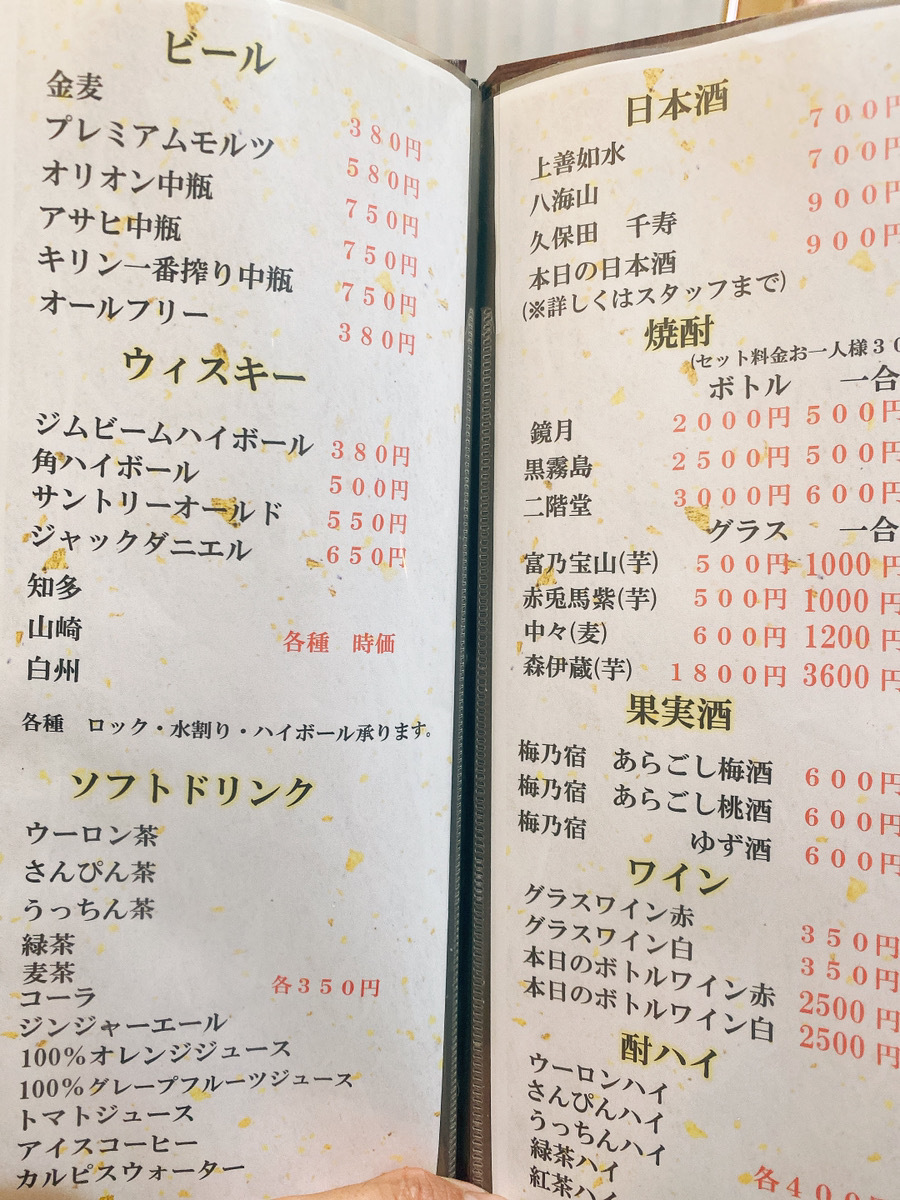 ビール
金麦 380円
プレミアムモルツ 580円
オリオン中瓶 750円
アサヒ中瓶 750円
キリン一番搾り中瓶 750円
オールフリー 380円
ウィスキー
ジムビームハイボール 380円
角ハイボール 500円
サントリーオールド 550円
ジャックダニエル 650円
知多
山崎 各種 時価
白州
各種 ロック・水割り・ハイボール承ります。
ソフトドリンク
ウーロン茶
さんぴん茶
うっちん茶
緑茶
麦茶
コーラ 各350円
ジンジャーエール
100%オレンジジュース
100%グレープフルーツジュース
トマトジュース
アイスコーヒー
カルピスウォーター
日本酒
上善如水 700円
八海山 700円
久保田 千寿 900円
本日の日本酒 900円
(※詳しくはスタッフまで)
焼酎
(セット料金お一人様30
ボトル 一合
鏡月 2000円 500円
黒霧島 2500円 500円
二階堂 3000円 600円
グラス 一合
富乃宝山(芋) 500円 1000円
赤兎馬紫(芋) 500円 1000円
中々(麦) 600円 1200円
森伊蔵(芋) 1800円 3600円
果実酒
梅乃宿 あらごし梅酒 600円
梅乃宿 あらごし桃酒 600円
梅乃宿 ゆず酒 600円
ワイン
グラスワイン赤 350円
グラスワイン白 350円
本日のボトルワイン赤 2500円
本日のボトルワイン白 2500円
酎ハイ
ウーロンハイ
さんぴんハイ
うっちんハイ
緑茶ハイ
紅茶ハイ 各400